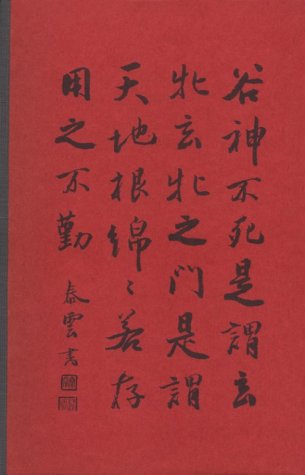 谷神不死是謂玄
牝玄牝之門是謂
天地根綿〻若存
用之不勤
泰雲書